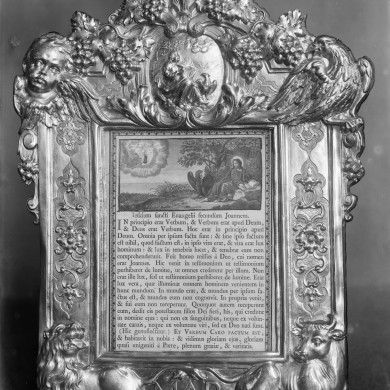 Initium sancti Evangelii secundum Joannem.
IN principio erat Verbum, & Verbum erat apud Deum,
& Deus erat Verbum. Hoc erat in principio apud
Deum. Omnia per ipsum facta sunt: & sine ipso factum
est nihil, quod factum est; in ipso vita erat, & vita erat lux
hominum: & lux in tenebris lucet, & tenebræ eam non
comprehenderunt. Fuit homo missus à Deo, cui nomen
erat Joannes. Hic venit in testimonium ut testimonium
perhiberet de lumine, ut omnes crederent per illum. Non
erat ille lux, sed ut testimonium perhiberet de lumine. Erat
lux vera, quæ illuminat omnem hominem venientem in
hunc mundum. In mundo erat, & mundus per ipsum fa-
ctus est, & mundus eum non cognovit. In propria venit,
& sui eum non receperunt. Quotquot autem receperunt
eum, dedit eis potestatem filios Dei fieri, his, qui credunt
in nomine ejus: qui non ex sanguinibus, neque ex volun-
tate carnis, neque ex voluntate viri, sed ex Deo nati sunt.
ET VERBUM CARO FACTUM EST,
& habitavit in nobis: & vidimus gloriam ejus, gloriam
quasi unigeniti à Patre, plenum gratiæ, & veritatis.